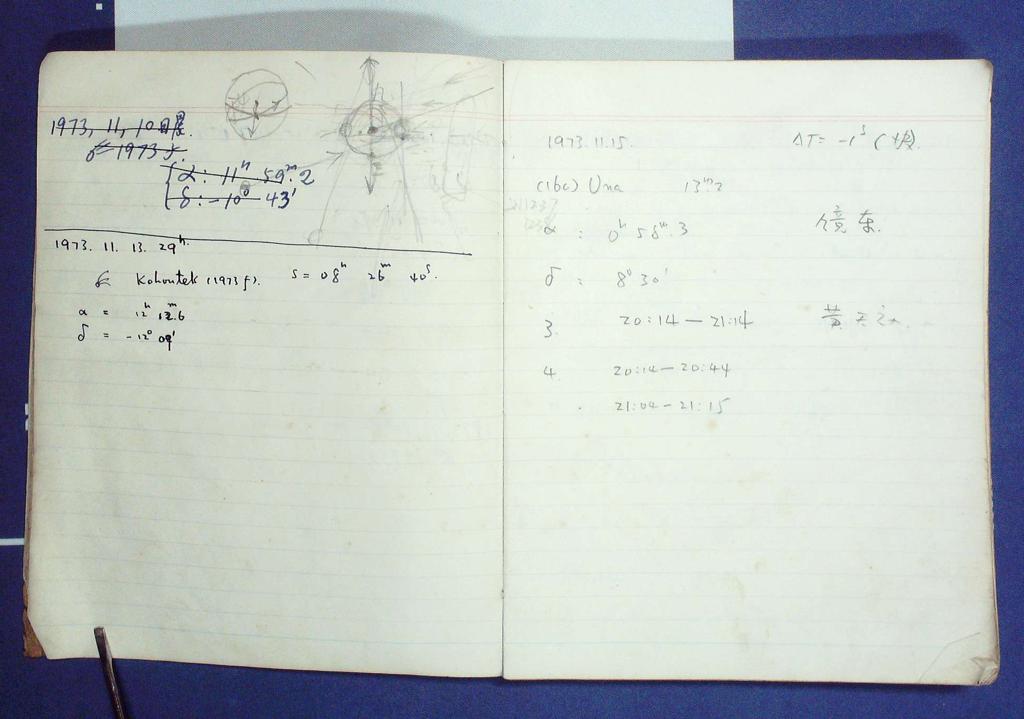 1973, 11, 10
1973 f.
α : 11ʰ 59ᵐ.2
δ : -10° 43'
1973. 11. 13. 29ʰ.
Kohoutek (1973 f). S = 08ʰ 26ᵐ 40ˢ.
α = 12ʰ 12ᵐ.6
δ = -12° 09'
1973.11.15. ΔT= -1ˢ (快)
(160) Una 13ᵐ.2
α : 0ʰ 58ᵐ.3 镜东.
δ : 8° 30'
3. 20:14 — 21:14
4. 20:14 — 20:44
21:04 — 21:15